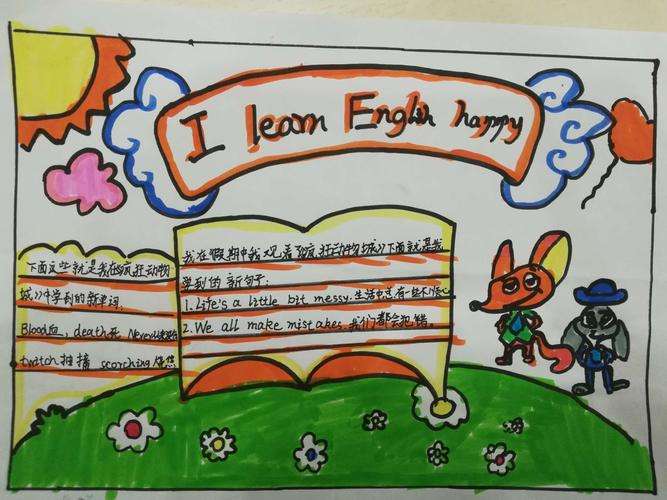 I learn English happy
下面这些就是我在《疯狂动物
城》中学到的新单词:
Blood血, death死
twitch抽搐 scorching
我在假期中我观看《疯狂动物城》下面就是我
学到的新句子:
1. Life's a little bit messy. 生活中总有一些不
2. We all make mistakes. 我们都会犯错。